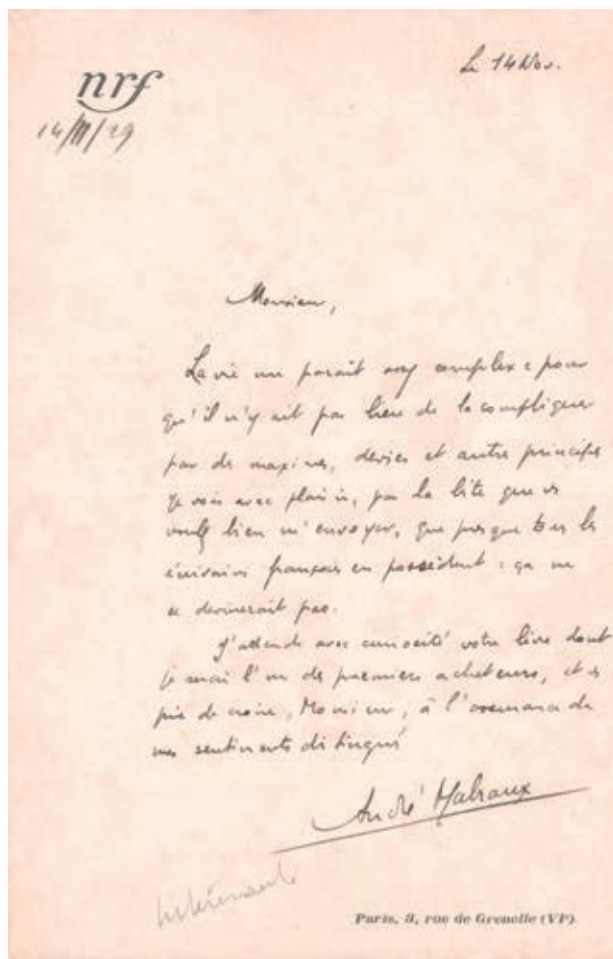 Le 14 Nov.
nrf
14/11/29
Monsieur,
La vie me paraît assez complexe pour
qu'il n'y ait pas lieu de la compliquer
par des maximes, devises et autres principes
Je vois avec plaisir, par la liste que vs
voulez bien m'envoyer, que presque tous les
écrivains français en possèdent : ça ne
se devinerait pas.
J'attends avec curiosité votre livre dont
je serai l'un des premiers acheteurs, et vs
prie de croire, Monsieur, à l'assurance de
mes sentiments distingués
André Malraux
Paris, 3, rue de Grenelle (VIe)